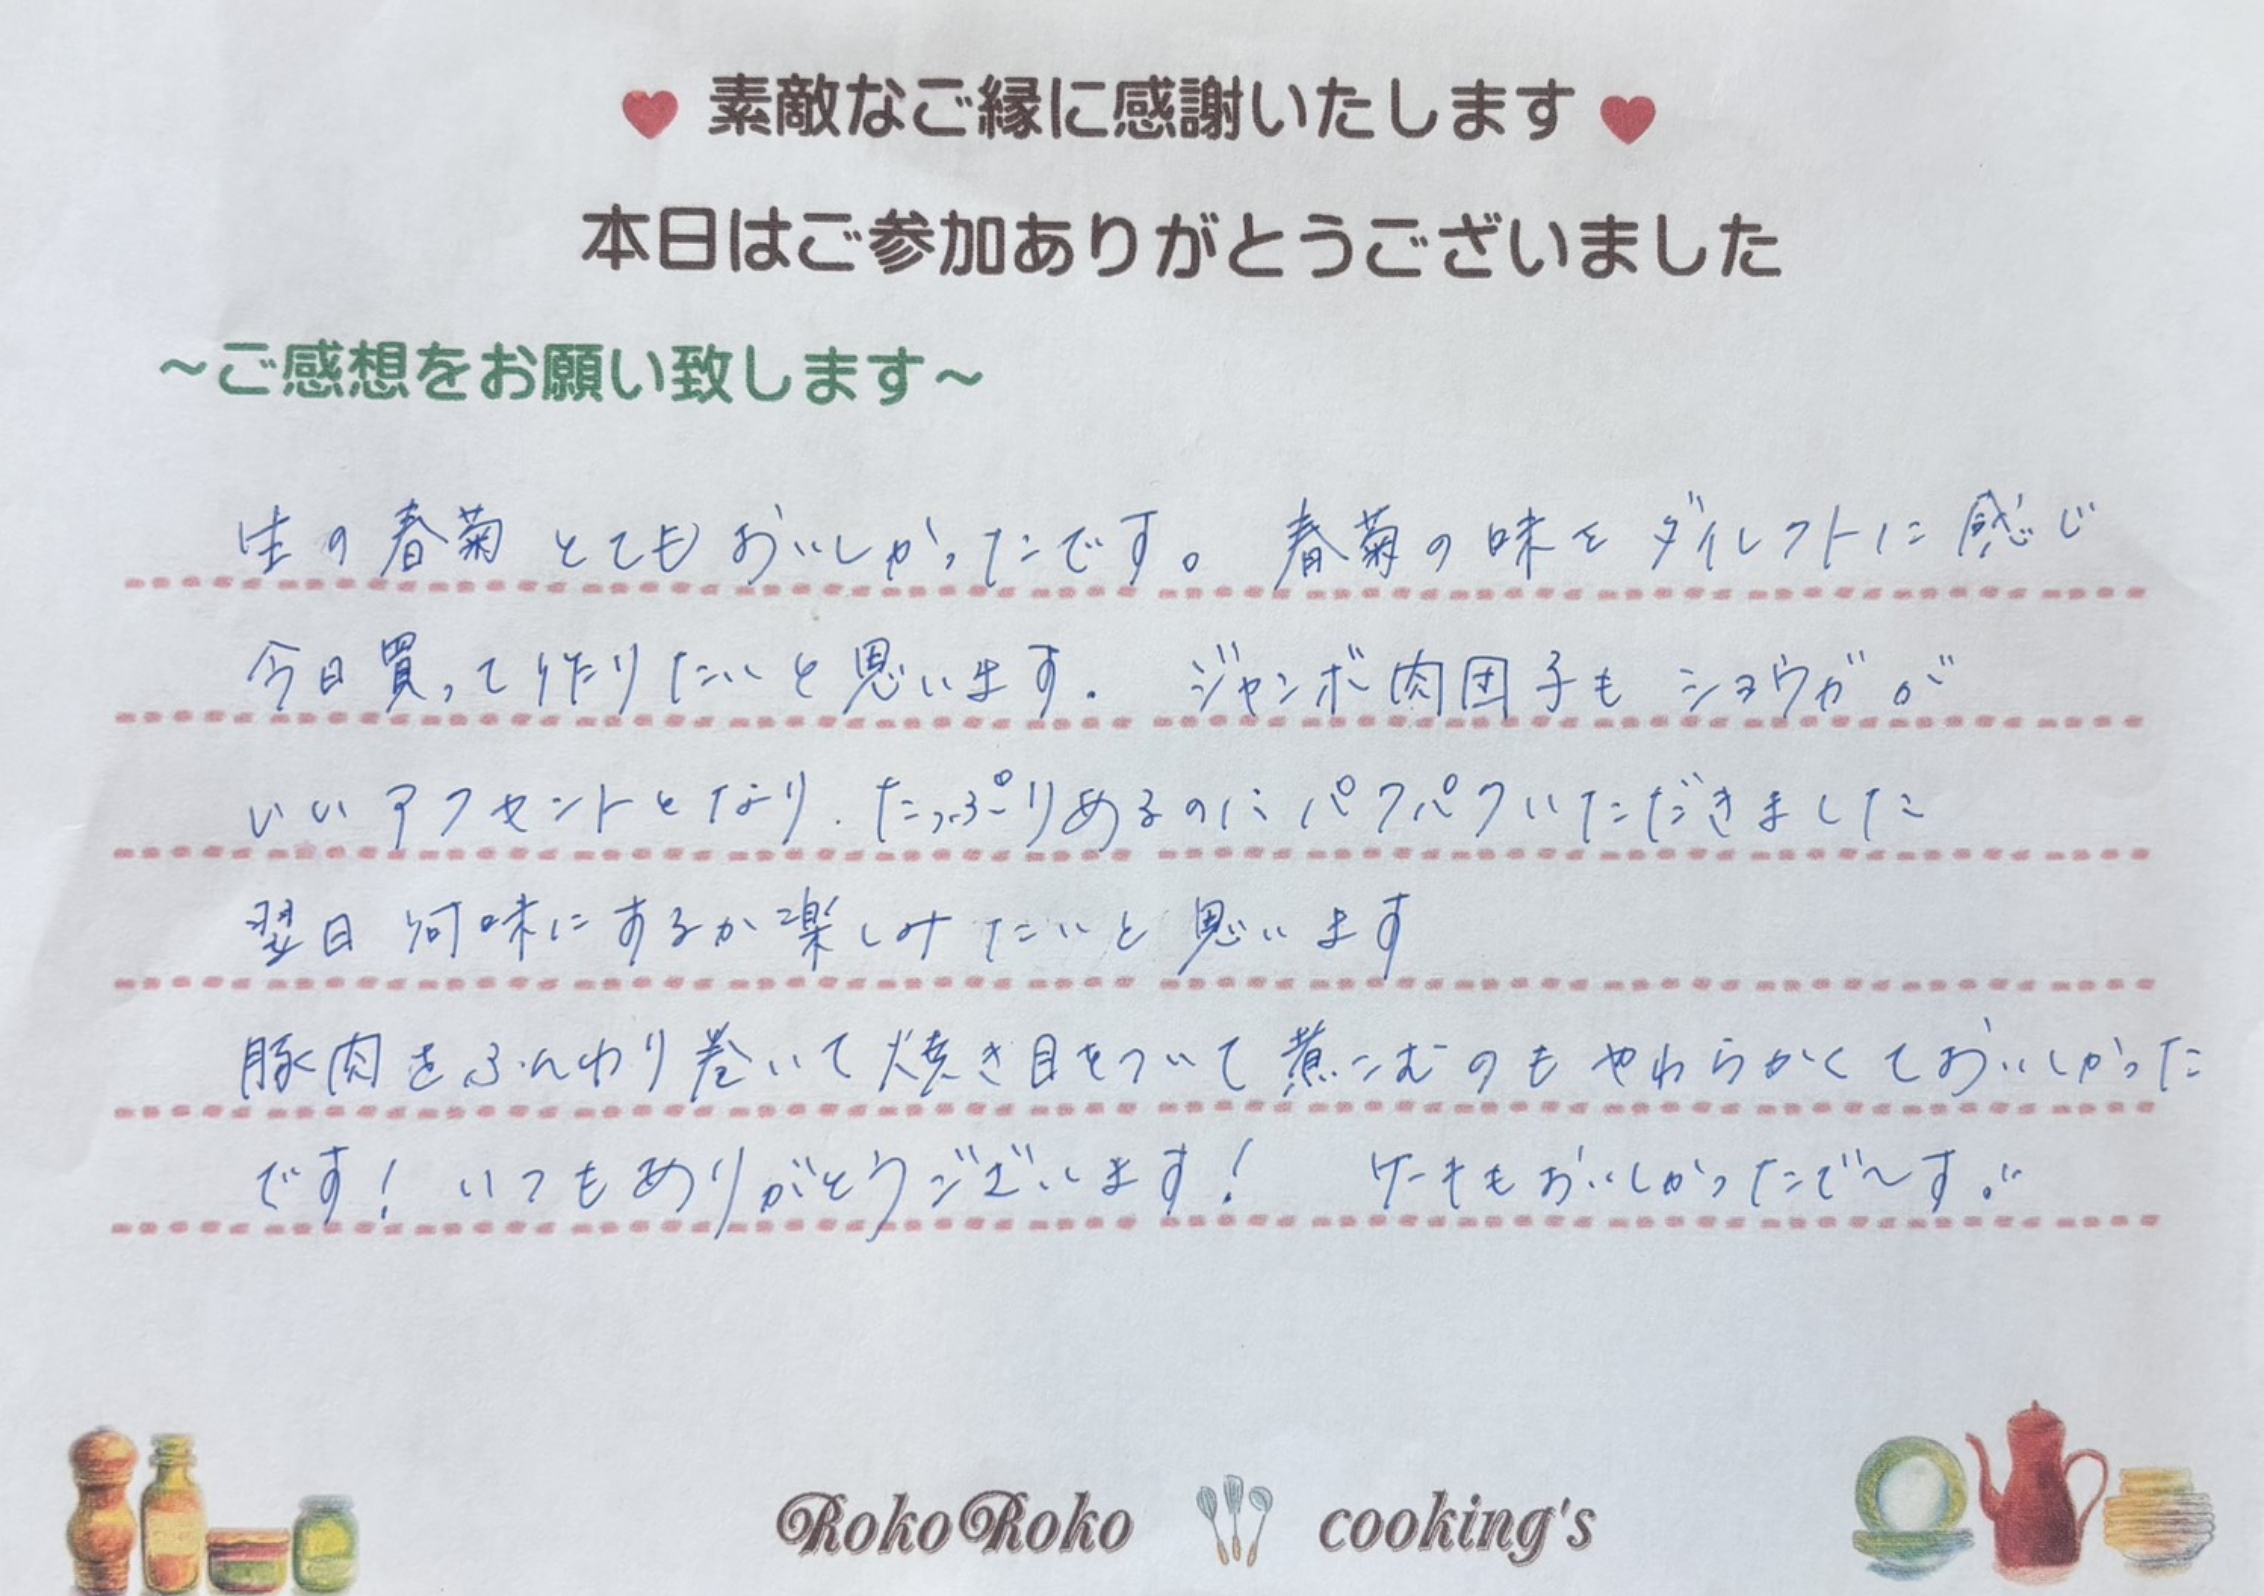 素敵なご縁に感謝いたします
本日はご参加ありがとうございました
~ご感想をお願い致します~
生の春菊とてもおいしかったです。春菊の味をダイレクトに感じ
今日買って作りたいと思います. ジャンボ肉団子もショウガが
いいアクセントとなり. たっぷりあるのにパクパクいただきました
翌日何味にするか楽しみたいと思います
豚肉をふんわり巻いて焼き目をついて煮こむのもやわらかくておいしかった
です! いつもありがとうございます! ケーキもおいしかったで~す。
RokoRoko cooking's